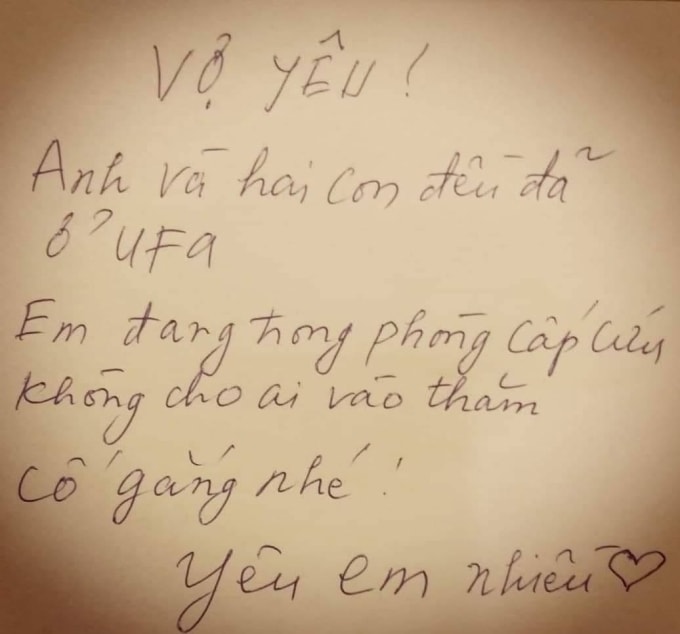 VỢ YÊU!
Anh và hai con đều đã
ở UFA
Em đang trong phòng cấp cứu
không cho ai vào thăm
cố gắng nhé!
Yêu em nhiều ♡